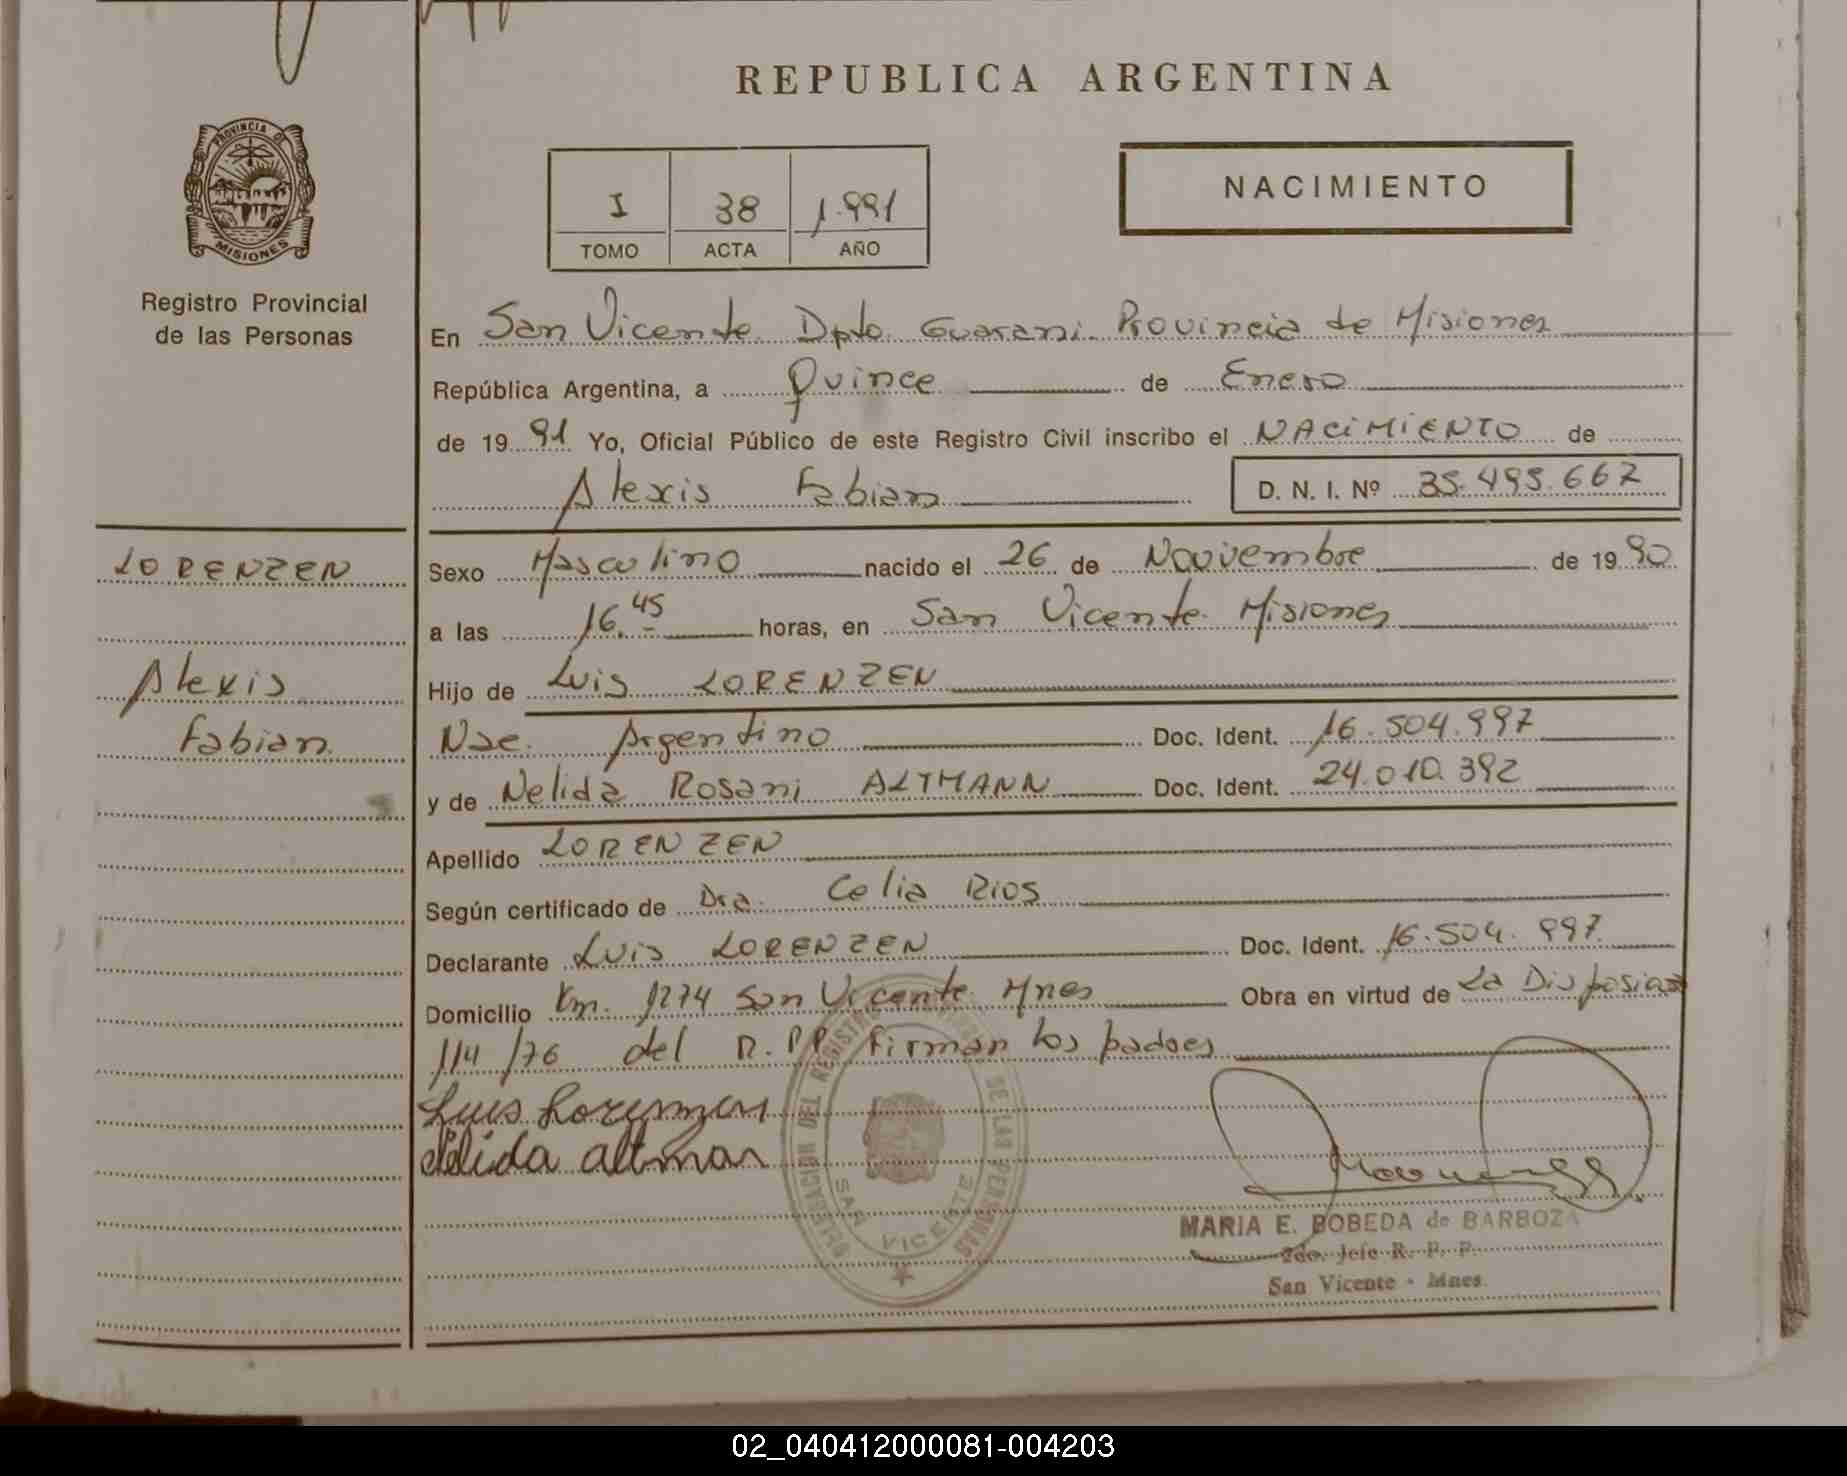 REPUBLICA ARGENTINA
PROVINCIA DE
MISIONES
Registro Provincial
de las Personas
I 38 1.991
TOMO ACTA AÑO
NACIMIENTO
En San Vicente Dpto. Guarani. Provincia de Misiones
República Argentina, a Quince de Enero
de 19 91 Yo, Oficial Público de este Registro Civil inscribo el NACIMIENTO de
Alexis Fabian D. N. I. Nº 35.495.667
LORENZEN
Alexis
Fabian
Sexo Masculino nacido el 26 de Noviembre de 19 90
a las 16.45 horas, en San Vicente Misiones
Hijo de Luis LORENZEN
Nac. Argentino Doc. Ident. 16.504.997
y de Nelida Rosani ALTMANN Doc. Ident. 24.010.392
Apellido LORENZEN
Según certificado de Dra. Celia Rios
Declarante Luis LORENZEN Doc. Ident. 16.504.997
Domicilio Km. 1274 San Vicente Mnes Obra en virtud de La
114/76 del R.PP. Firman los padres
Luis Lorenzen
Nélida altman
DELEGACION DEL REGISTRO DE LAS PERSONAS
SAN VICENTE
MARIA E. BOBEDA de BARBOZA
2do. Jefe R. P. P.
San Vicente - Mnes.
02_040412000081-004203